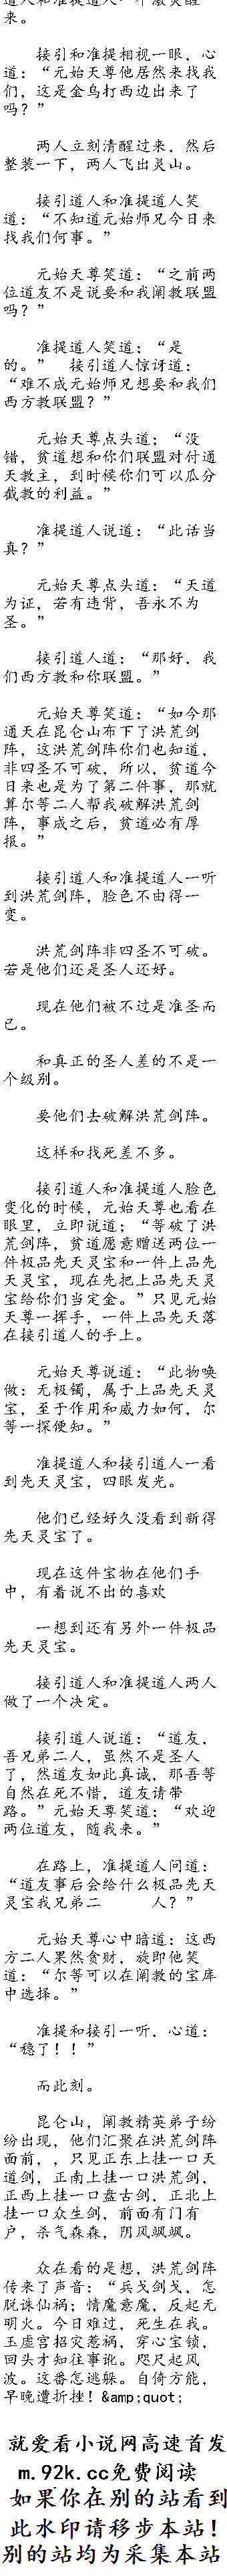 来。
接引和准提相视一眼，心
道：“元始天尊他居然来找我
们，这是金乌打西边出来了
吗？”
两人立刻清醒过来，然后
整装一下，两人飞出灵山。
接引道人和准提道人笑
道：“不知道元始师兄今日来
找我们何事。”
元始天尊笑道：“之前两
位道友不是说要和我阐教联盟
吗？”
准提道人笑道：“是
的。” 接引道人惊讶道：
“难不成元始师兄想要和我们
西方教联盟？”
元始天尊点头道；“没
错，贫道想和你们联盟对付通
天教主，到时候你们可以瓜分
截教的利益。”
准提道人说道：“此话当
真？”
元始天尊点头道：“天道
为证，若有违背，吾永不为
圣。”
接引道人道：“那好，我
们西方教和你联盟。”
元始天尊笑道：“如今那
通天在昆仑山布下了洪荒剑
阵，这洪荒剑阵你们也知道，
非四圣不可破，所以，贫道今
日来也是为了第二件事，那就
算尔等二人帮我破解洪荒剑
阵，事成之后，贫道必有厚
报。”
接引道人和准提道人一听
到洪荒剑阵，脸色不由得一
变。
洪荒剑阵非四圣不可破。
若是他们还是圣人还好。
现在他们被不过是准圣而
已。
和真正的圣人差的不是一
个级别。
要他们去破解洪荒剑阵。
这样和找死差不多。
接引道人和准提道人脸色
变化的时候，元始天尊也看在
眼里，立即说道；“等破了洪
荒剑阵，贫道愿意赠送两位一
件极品先天灵宝和一件上品先
天灵宝，现在先把上品先天灵
宝给你们当定金。”只见元始
天尊一挥手，一件上品先天落
在接引道人的手上。
元始天尊说道：“此物唤
做：无极镯，属于上品先天灵
宝，至于作用和威力如何，尔
等一探便知。”
准提道人和接引道人一看
到先天灵宝，四眼发光。
他们已经好久没看到新得
先天灵宝了。
现在这件宝物在他们手
中，有着说不出的喜欢
一想到还有另外一件极品
先天灵宝。
接引道人和准提道人两人
做了一个决定。
接引道人说道：“道友，
吾兄弟二人，虽然不是圣人
了，然道友如此真诚，那吾等
自然在死不惜，道友请带
路。”元始天尊笑道：“欢迎
两位道友，随我来。”
在路上，准提道人问道：
“道友事后会给什么极品先天
灵宝我兄弟二 人？”
元始天尊心中暗道：这西
方二人果然贪财，旋即他笑
道：“尔等可以在阐教的宝库
中选择。”
准提和接引一听，心道：
“稳了！！”
而此刻。
昆仑山，阐教精英弟子纷
纷出现，他们汇聚在洪荒剑阵
面前，，只见正东上挂一口天
道剑，正南上挂一口洪荒剑，
正西上挂一口盘古剑，正北上
挂一口众生剑，前面有门有
户，杀气森森，阴风飒飒。
众在看的是想，洪荒剑阵
传来了声音：“兵戈剑戈，怎
脱诛仙祸；情魔意魔，反起无
明火。今日难过，死生在我。
玉虚宫招灾惹祸，穿心宝锁，
回头才知往事讹。咫尺起风
波。这番怎逃躲。自倚方能，
早晚遭折挫！&amp;quot;
就爱看小说网高速首发
m.92k.cc免费阅读
如果你在别的站看到
此水印请移步本站！
别的站均为采集本站